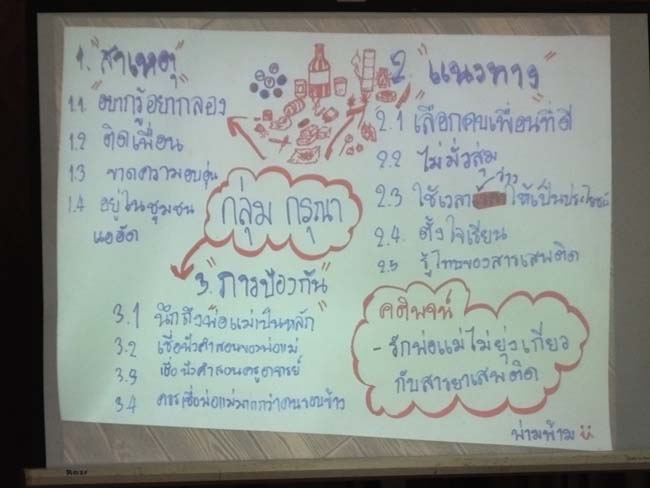 1. "สาเหตุ"
1.1 "อยากรู้อยากลอง
1.2 ติดเพื่อน
1.3 ขาดความอบอุ่น
1.4 อยู่ในชุมชน
แออัด
กลุ่ม กรุณา
2. "แนวทาง"
2.1 "เลือกคบเพื่อนที่ดี
2.2 ไม่มั่วสุม
2.3 ใช้เวลาว่างให้เป็นประโยชน์
2.4. ตั้งใจเรียน
2.5 รู้โทษของสารเสพติด
3. "การป้องกัน"
3.1 นึกถึงพ่อแม่เป็นหลัก
3.2 เชื่อฟังคำสอนของพ่อแม่
3.3 เชื่อฟังคำสอนครูอาจารย์
3.4 ควรเชื่อพ่อแม่มากกว่าคนรอบข้าง
คติพจน์
- รักพ่อแม่ไม่ยุ่งเกี่ยว
กับสารยาเสพติด